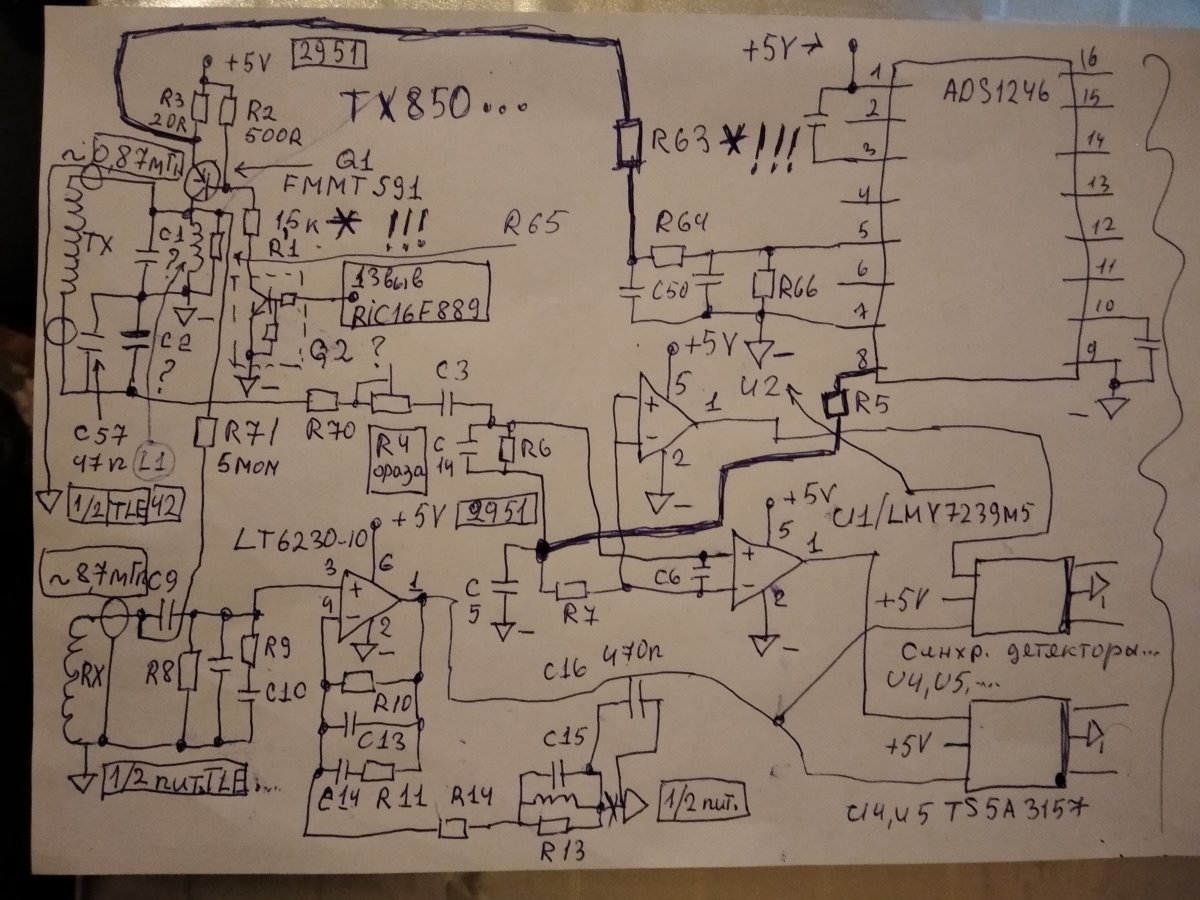 +5V
2951
R3
20R
R2
500R
TX850...
+5V→
1
2
3
4
5
6
7
8
ADS1246
16
15
14
13
12
11
10
9
R63 * !!!
~0,87мГн
Q1
FMMT591
15к * !!!
R1
R65
TX
C1
?
13выв
PiC16F889
R64
C50
R66
C2
?
Q2 ?
C57
47n
L1
R71
5мОм
R70
C3
R4
фраза
C
14
R6
+5V
5
+
-
1
2
U2
R5
1/2 TLE 42
+5V
2951
LT6230-10
~87мГн
C9
3
6
+
4
-
1
2
C
5
R7
C6
+5V
5
+
-
1
2
U1/LMV7239M5
+5V
RX
R8
R9
C10
R10
C13
C14
R11
R14
C16
470n
C15
R13
1/2 пит.
1/2 пит.TLE...
Синхр. детекторы...
U4,U5,...
+5V
U4,U5 TS5A3157